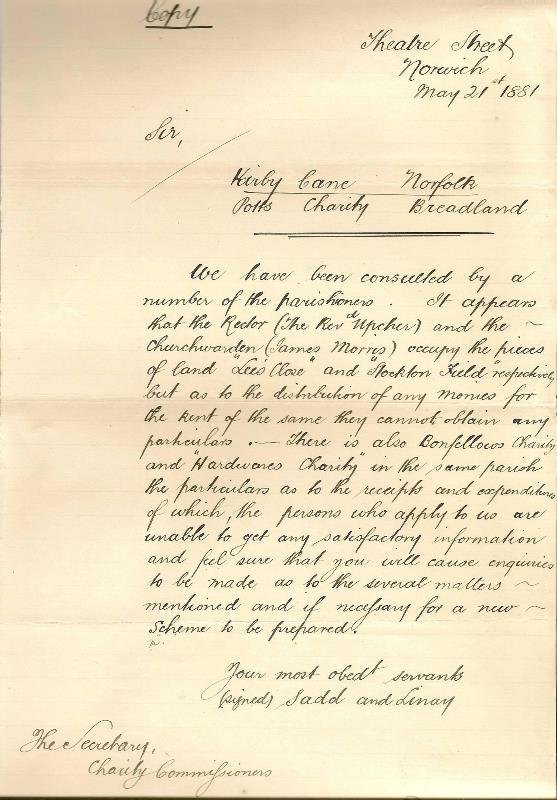 Copy
Theatre Street
Norwich
May 21st 1881
Sir,
Kirby Cane Norfolk
Potts Charity Breadland
We have been consulted by a
number of the parishioners. It appears
that the Rector (The Revd Upcher) and the ~
Churchwarden (James Morris) occupy the pieces
of land "Lees Close" and "Stockton Field" respectively
but as to the distribution of any monies for
the rent of the same they cannot obtain any
particulars. — There is also Bonfellows Charity
and "Hardwares Charity" in the same parish
the particulars as to the receipts and expenditures
of which, the persons who apply to us are
unable to get any satisfactory information
and feel sure that you will cause enquiries
to be made as to the several matters ~
mentioned and if necessary for a new ~
Scheme to be prepared.
Your most obedt servants
(signed) Sadd and Linay
The Secretary,
Charity Commissioners